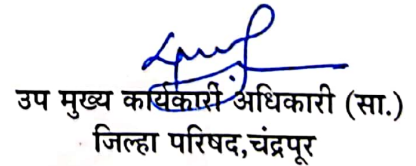 उप मुख्य कार्यकारी अधिकारी (सा.)
जिल्हा परिषद,चंद्रपूर